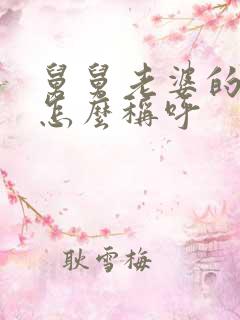 舅舅老婆的
怎麼稱呼
耿雪梅